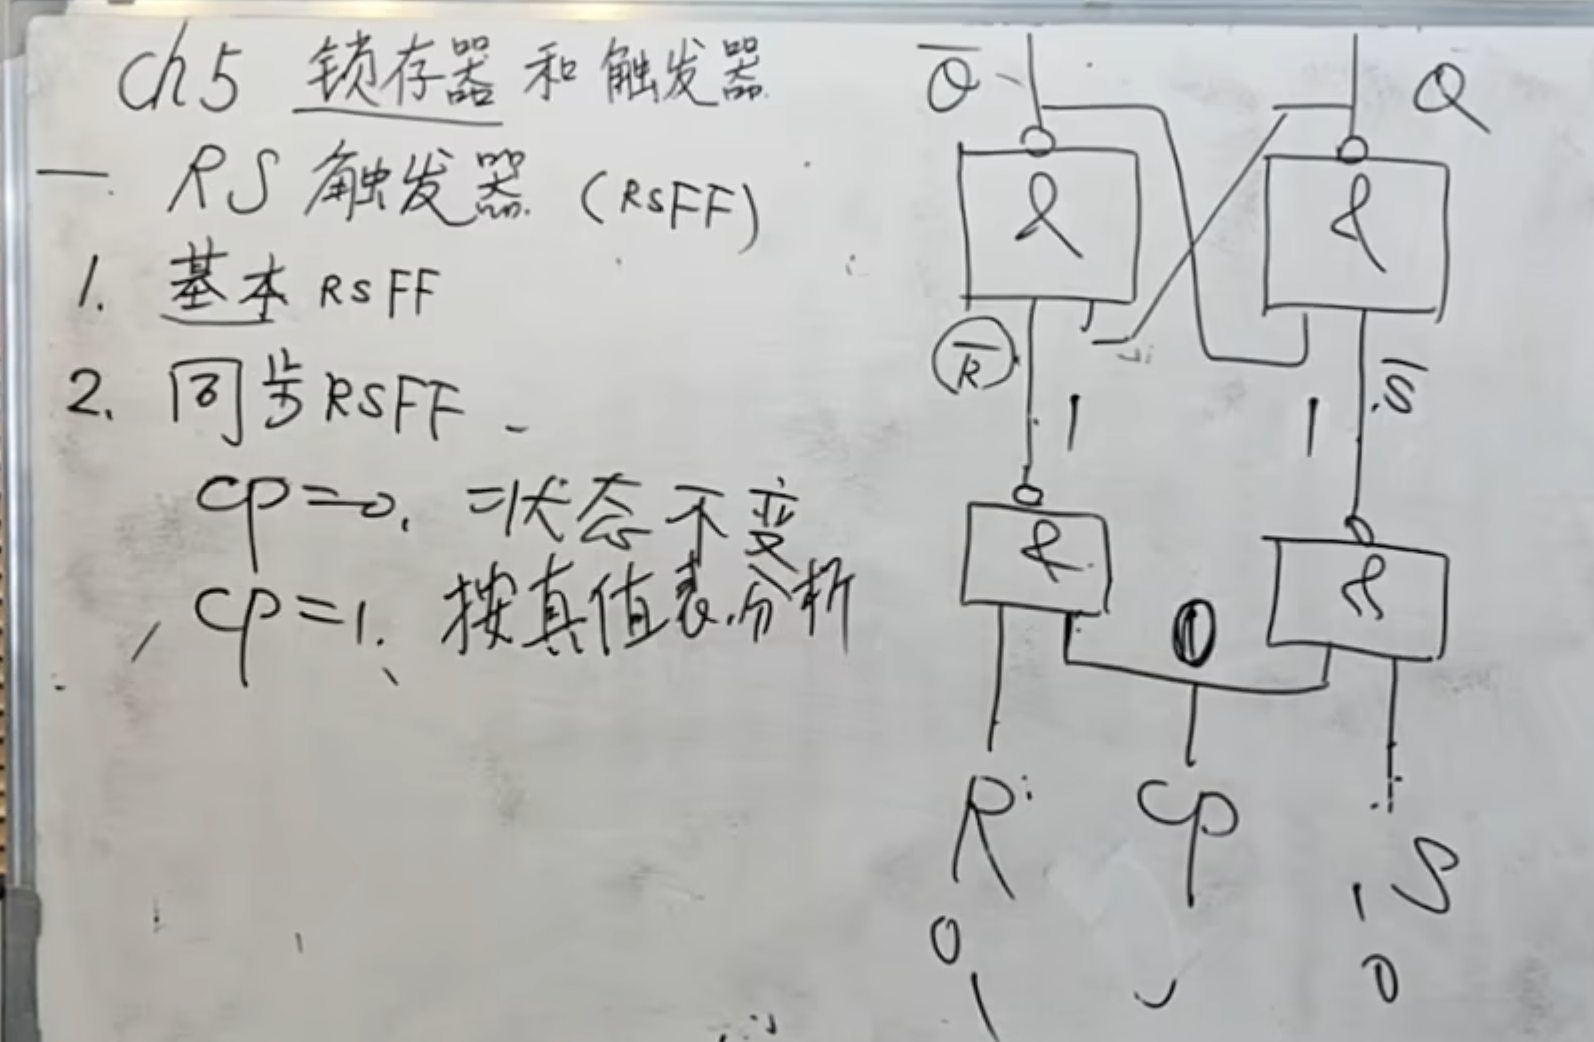 ch5 锁存器和触发器
一. RS 触发器 (RSFF)
1. 基本 RSFF
2. 同步 RSFF
CP=0. 状态不变
CP=1. 按真值表分析
Q̅ Q
& &
R̅ S̅
1 1
& &
R CP S
0 1
1 0